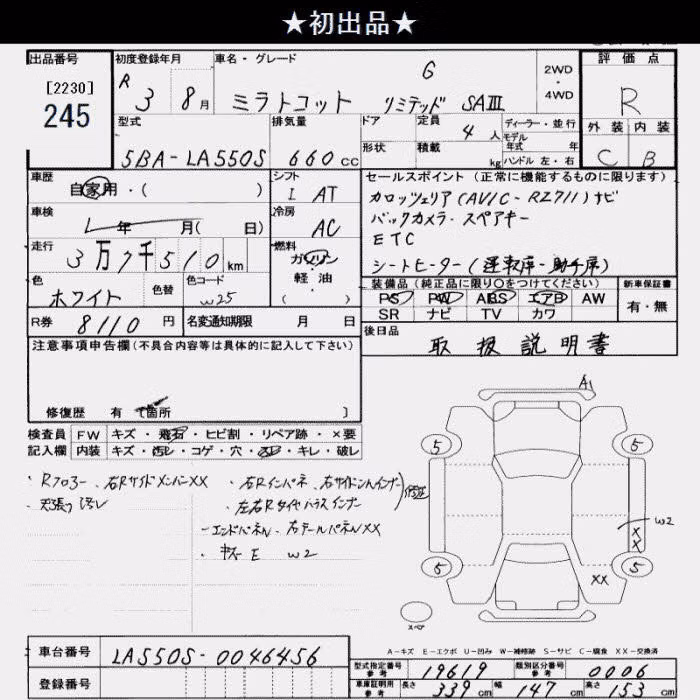 ★初出品★
出品番号 初度登録年月 車名・グレード 評価点
[2230]
245
R 3 8月 ミラトコット G リミテッド SAⅢ 2WD・4WD R
型式 排気量 ドア 定員 4人 ディーラー・並行 外装 内装
モデル年式 年
5BA-LA550S 660cc 形状 積載 kg ハンドル 左・右 C B
車歴 自家用・( ) シフト I AT
セールスポイント (正常に機能するものに限ります)
カロッツェリア(AVIC-RZ711)ナビ
車検 年 月( 日) 冷房 AC
バックカメラ・スペアキー
ETC
走行 3万7千510km 燃料 ガソリン・軽油( )
シートヒーター(運転席-助手席)
色 ホワイト 色替 色コード W25
装備品 (純正品に限り○をつけてください) 新車保証書
PS PW ABS エアB AW 有・無
SR ナビ TV カワ
R券 8110円 名変通知期限 月 日
後日品 取扱説明書
注意事項申告欄 (不具合内容等は具体的に記入して下さい)
修復歴 有 [箇所 ]
検査員 FW キズ・飛石・ヒビ割・リペア跡・×要
記入欄 内装 キズ・汚レ・コゲ・穴・スレ・キレ・破レ
・Rフロアー、右RサイドメンバーXX
・右Rインパネ、右サイドシルインナー
・天張り汚レ
・左右Rタイヤハウスインナー
-エンドパネル、右テールパネルXX
・キズ E W2
A1
5 5
W2
X
X
5 5
XX
スペア
A-キズ E-エクボ U-凹み W-補修跡 S-サビ C-腐食 XX-交換済
車台番号 LA550S-0046456
型式指定番号 参考 19619 類別区分番号 参考 0006
登録番号
車庫証明用 参考 長さ 339cm 幅 147cm 高さ 153cm